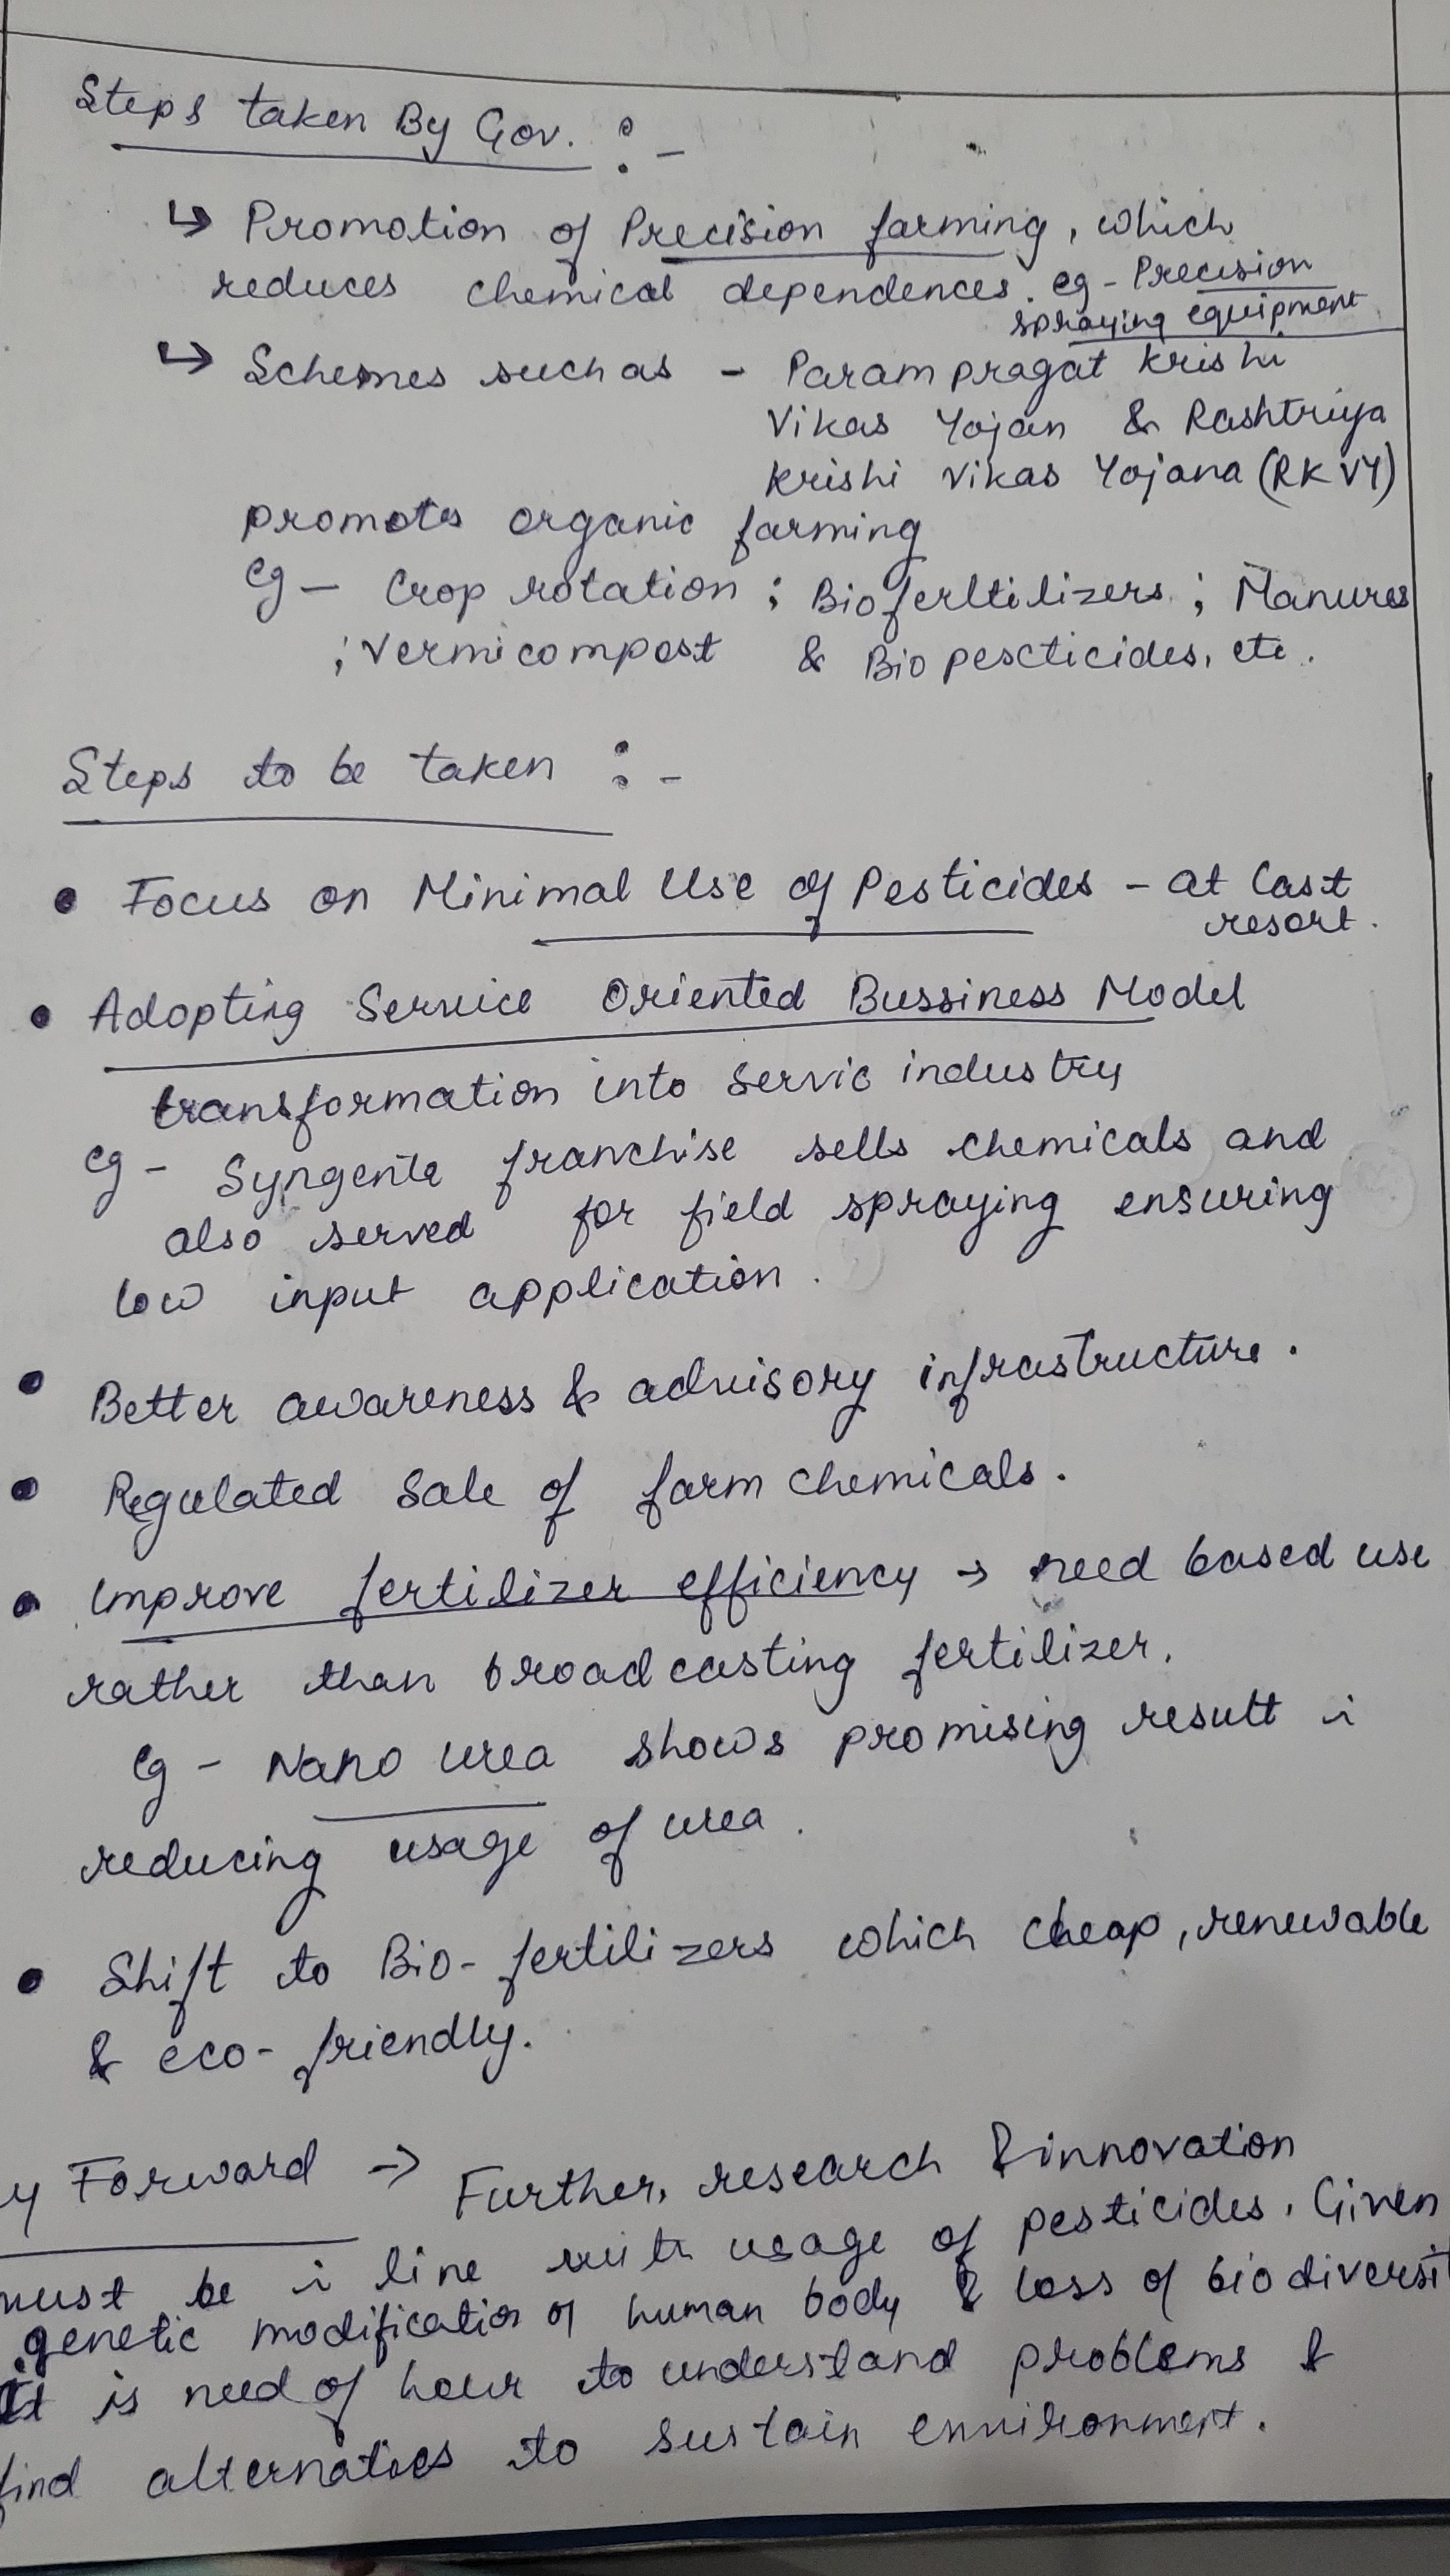 Steps taken By Gov. :-
↳ Promotion of Precision farming, which
reduces chemical dependences. eg - Precision
spraying equipment
↳ Schemes such as - Parampragat Krishi
Vikas Yojan & Rashtriya
Krishi Vikas Yojana (RKVY)
promotes organic farming
eg - Crop rotation ; Bioferltilizers ; Manures
; Vermicompost & Bio pescticides, etc.
Steps to be taken :-
• Focus on Minimal Use of Pesticides - at last
resort.
• Adopting Service Oriented Bussiness Model
transformation into servic industry
eg - Syngenta franchise sells chemicals and
also served for field spraying ensuring
low input application.
• Better awareness & advisory infrastructure.
• Regulated Sale of farm chemicals.
• Improve fertilizer efficiency → need based use
rather than broadcasting fertilizer.
eg - Nano urea shows promising result i
reducing usage of urea.
• Shift to Bio-fertilizers which cheap, renewable
& eco-friendly.
y Forward → Further, research & innovation
must be i line with usage of pesticides. Given
genetic modification of human body & loss of biodiversit
It is need of hour to understand problems &
find alternatives to sustain environment.